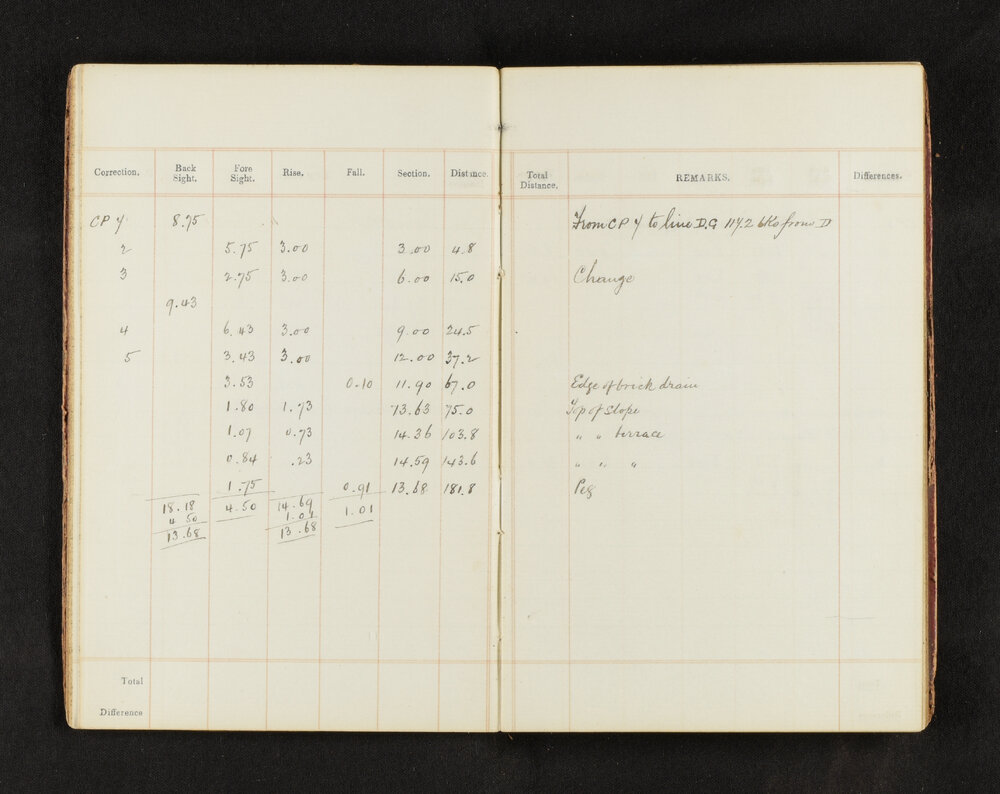 Correction. Back Sight. Fore Sight. Rise. Fall. Section. Distance. Total Distance. REMARKS. Differences.
CP Y 8.75 From CP Y to line D.G 117.2 lks from D
2 5.75 3.00 3.00 4.8
3 2.75 3.00 6.00 15.0 Change
9.43
4 6.43 3.00 9.00 24.5
5 3.43 3.00 12.00 37.2
3.53 0.10 11.90 67.0 Edge of brick drain
1.80 1.73 13.63 75.0 Top of Slope
1.07 0.73 14.36 103.8 " " terrace
0.84 .23 14.59 143.6 " " "
1.75 0.91 13.68 181.8 Peg
18.18 4.50 14.69 1.01
4.50 1.01
13.68 13.68
Total
Difference